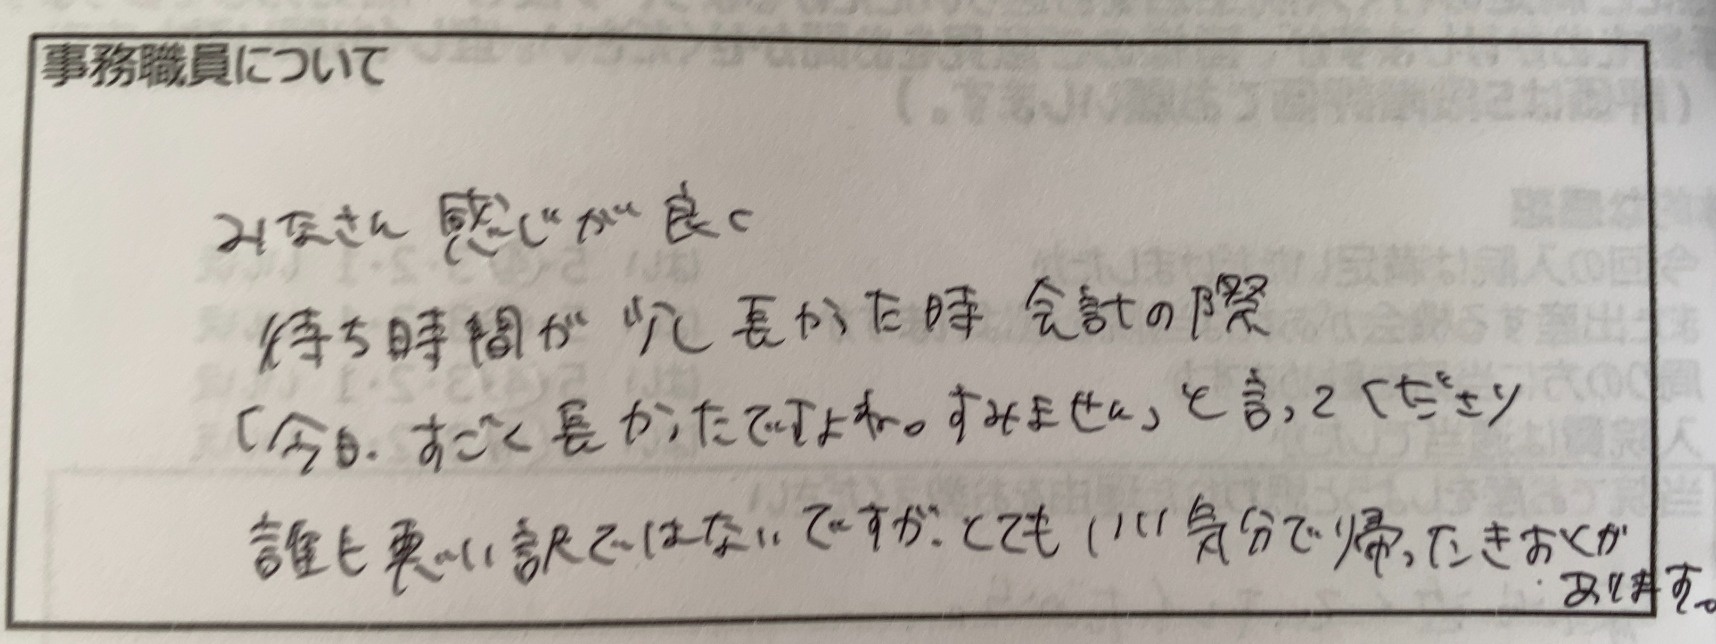 事務職員について
みなさん 感じが良く
待ち時間が 長かった時 会計の際
「今日、すごく長かったですよね。すみません」と言ってくださり
誰も悪い訳ではないですが、とてもいい気分で帰ったきおくが
あります。